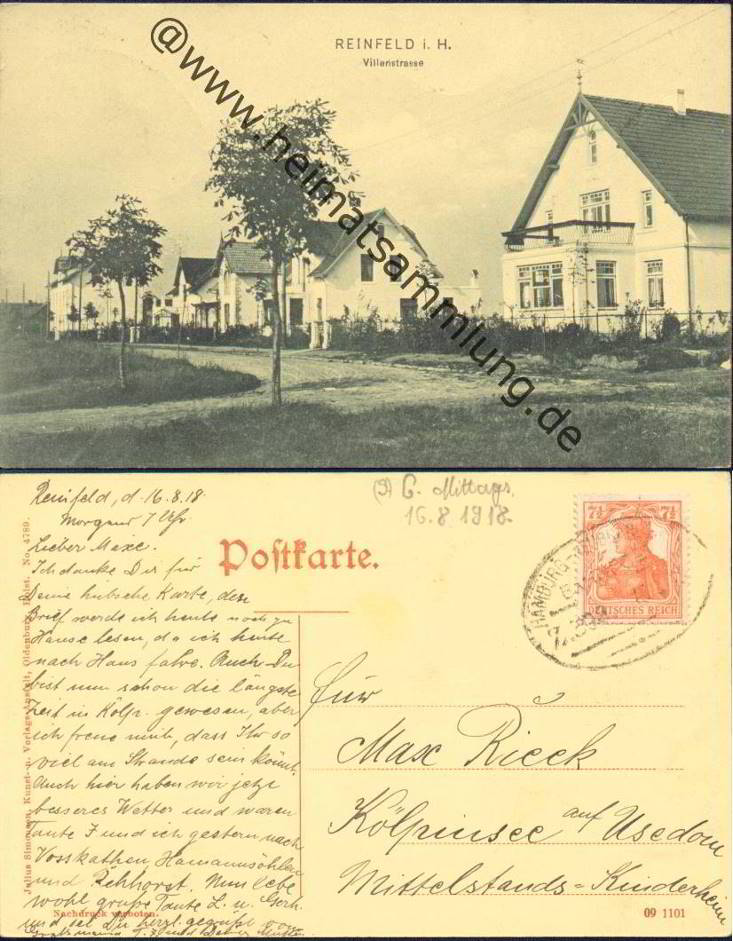 REINFELD i. H.
Villenstrasse
@www.heimatsammlung.de
Reinfeld, d. 16.8.18
Morgens 7 Uhr
Lieber Maxe.
Ich danke Dir für
Deine hübsche Karte, den
Brief werde ich heute noch zu
Hause lesen, da ich heute
nach Haus fahre. Auch Du
bist nun schon die längste
Zeit in Kölp. gewesen, aber
ich freue mich, dass Ihr so
viel am Strande sein könnt.
Auch hier haben wir jetzt
besseres Wetter und waren
Tante F und ich gestern nach
Vosskathen, Hamannsöhlen
und Rehhorst. Nun lebe
wohl grüße Tante L. u. Gerh.
und sei Du herzl. gegrüßt von
Postkarte.
(3) C. Mittags,
16.8 1918.
7½ 7½
DEUTSCHES REICH
HAMBURG
Für
Max Rieck
Kölpinsee auf Usedom
Mittelstands-Kinderheim
Julius Simonsen, Kunst- u. Verlagsanstalt, Oldenburg, Holst. No. 4789.
Nachdruck verboten.
09 1101